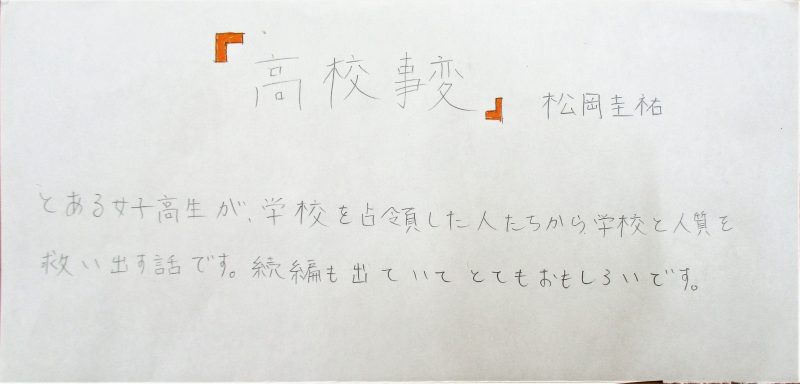 『高校事変』 松岡圭祐
とある女子高生が、学校を占領した人たちから学校と人質を
救い出す話です。続編も出ていてとてもおもしろいです。